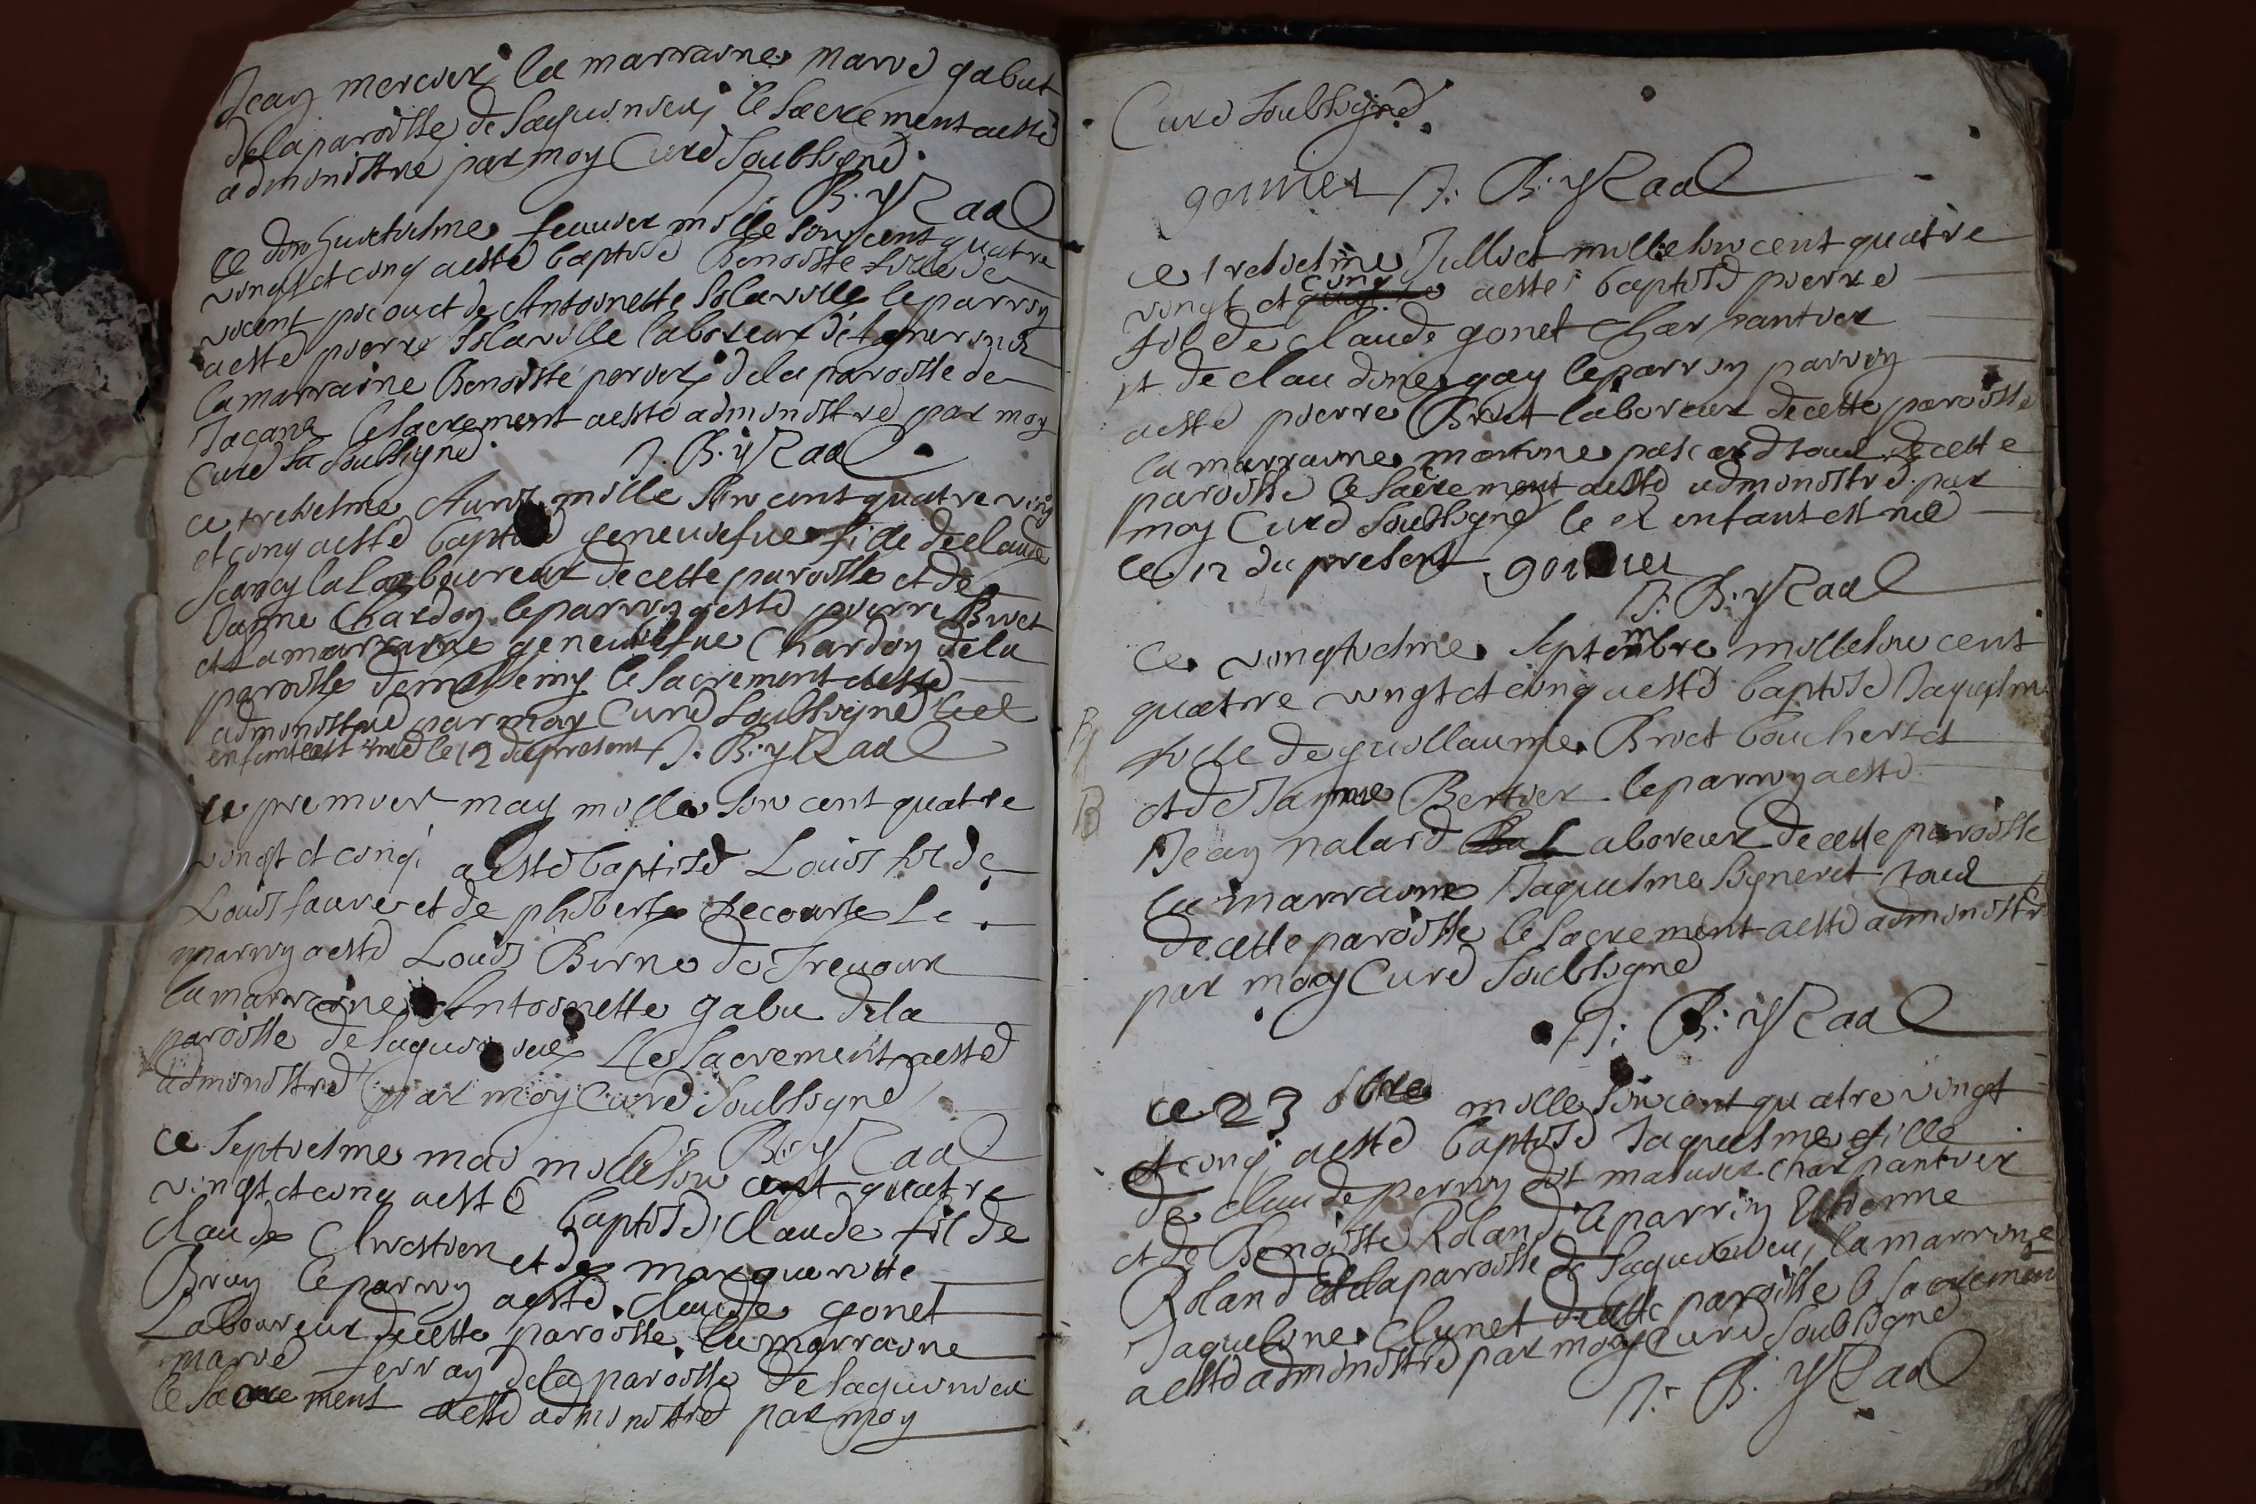 Jean mercier la marraine marie gabut
de la paroisse de Saquinieu le Sacrement a esté
administre par moy Curé Soubsigné
J. B. YSRaal
Ce dixhuictiesme feauvier mille six cent quatre
vingt et cinq a esté baptisé Benoiste fille de
vicent picou et de Antoinette Silaville le parrin
a esté pierre Silaville laboreur
la marraine Benoiste perier de la paroisse de
le Sacrement a esté administré par moy
Curé Soubsigné J. B. YSRaal
ce tresiesme Avril mille Six cent quatre ving
et cinq a esté baptisé geneviefve fille de Claude
laboureur de cette paroisse et de
Janne Chardon le parrin a esté pierre Brict
et La marraine geneviefve Chardon de la
paroisse de messimy le Sacrement a esté
administré par moy Curé Soubsigné le
enfant est né le 12 du present J. B. YSRaal
ce premier may mille Six cent quatre
vingt et cinq a esté baptisé Louis fil de
Louis faure et de phiberte Decourte Le
parrin a esté Louis Birne de Trevoux
la marraine Antoinette gabu de la
paroisse de Saquinieu Le Sacrement a esté
administré par moy Curé Soubsigné
J. B. YSRaal
Ce Septiesme mai mille Six cent quatre
vingt et cinq a esté baptisé Claude fil de
Claude Chrestien et de marguerite
Brun le parrin a esté Claude gonet
Laboureur de cette paroisse la marraine
marie ferray de la paroisse de Saquinieu
le Sacrement a esté administré par moy
Curé Soubsigné
gonnet J. B. YSRaal
ce tresiesme Julliet mille Six cent quatre
vingt et cinq a esté baptisé pierre
fil de Claude gonet Charpantier
et de Claudine gay le parrin parrin
a esté pierre Brict laboreur de cette paroisse
la marraine martine pascard tous de cette
paroisse le Sacrement a esté administré par
moy Curé Soubsigné le enfant est né
le 12 du present gonnet
J. B. YSRaal
Ce vingtiesme Septembre mille Six cent
quatre vingt et cinq a esté baptisé Jaquesme
fille de guillaume Brict boucher et
et de Janne Bertier le parrin a esté
Jean nalard Laboreur de cette paroisse
la marraine Jaquesme Signeret tous
de cette paroisse le Sacrement a esté administré
par moy Curé Soubsigné
J. B. YSRaal
ce 23 8bre mille Six cent quatre vingt
et cinq a esté baptisé Jaquesme fille
de Claude perrin dit masuier Charpantier
et de Benoiste Roland le parrin Estienne
Roland de la paroisse de Saquinieu, la marrine
Jaqueline Clunet de cette paroisse le Sacremen
a esté administré par moy Curé Soubsigné
J. B. YSRaal